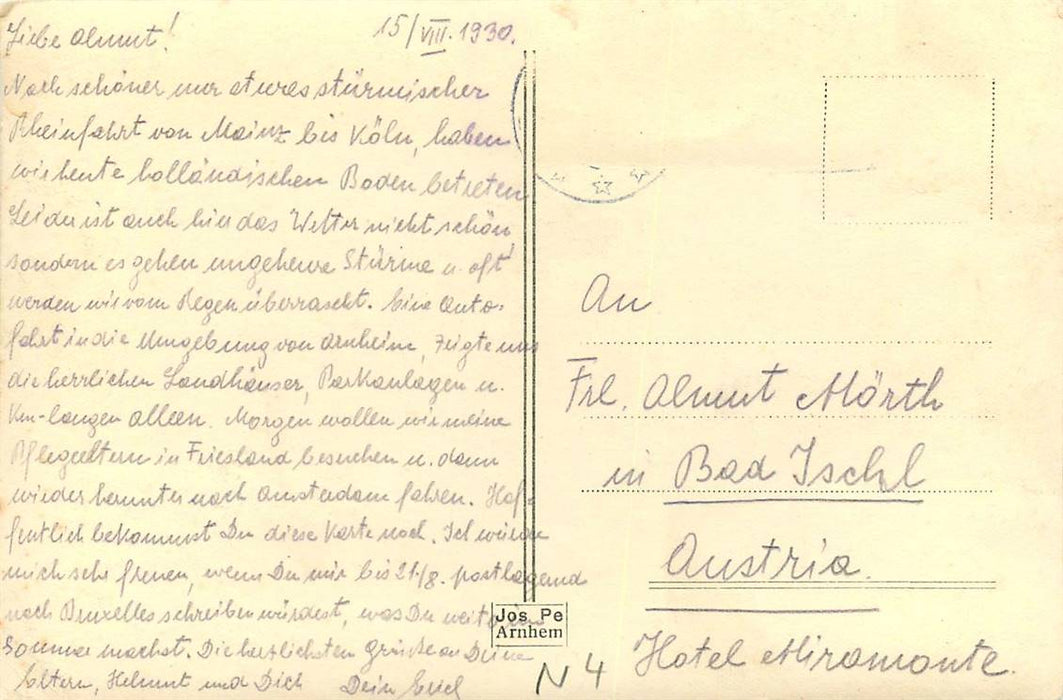 15/VIII. 1930.
Liebe Almut!
Nach schöner nur etwas stürmischer
Rheinfahrt von Mainz bis Köln, haben
wir heute holländischen Boden betreten
Leider ist auch hier das Wetter nicht schön,
sondern es gehen ungeheure Stürme u. oft
werden wir vom Regen überrascht. Eine Auto-
fahrt in die Umgebung von Arnheim, zeigte uns
die herrlichen Landhäuser, Parkanlagen u.
Km-langen Alleen. Morgen wollen wir meine
Pflegeeltern in Friesland besuchen u. dann
wieder herunter nach Amsterdam fahren. Hof-
fentlich bekommst Du diese Karte noch. Ich würde
mich sehr freuen, wenn Du mir bis 21./8. postlagend
nach Bruxelles schreiben würdest, was Du weiter im
Sommer machst. Die herzlichsten Grüße an Deine
Eltern, Helmut und Dich Dein Erich
An
Frl. Almut Mörth
in Bad Ischl
Austria.
Hotel Miramonte.
Jos Pe
Arnhem
N 4